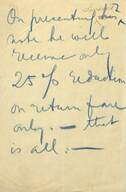 On presenting this
note he will
receive only
25% reduction
on return fare
only. — that
is all. —